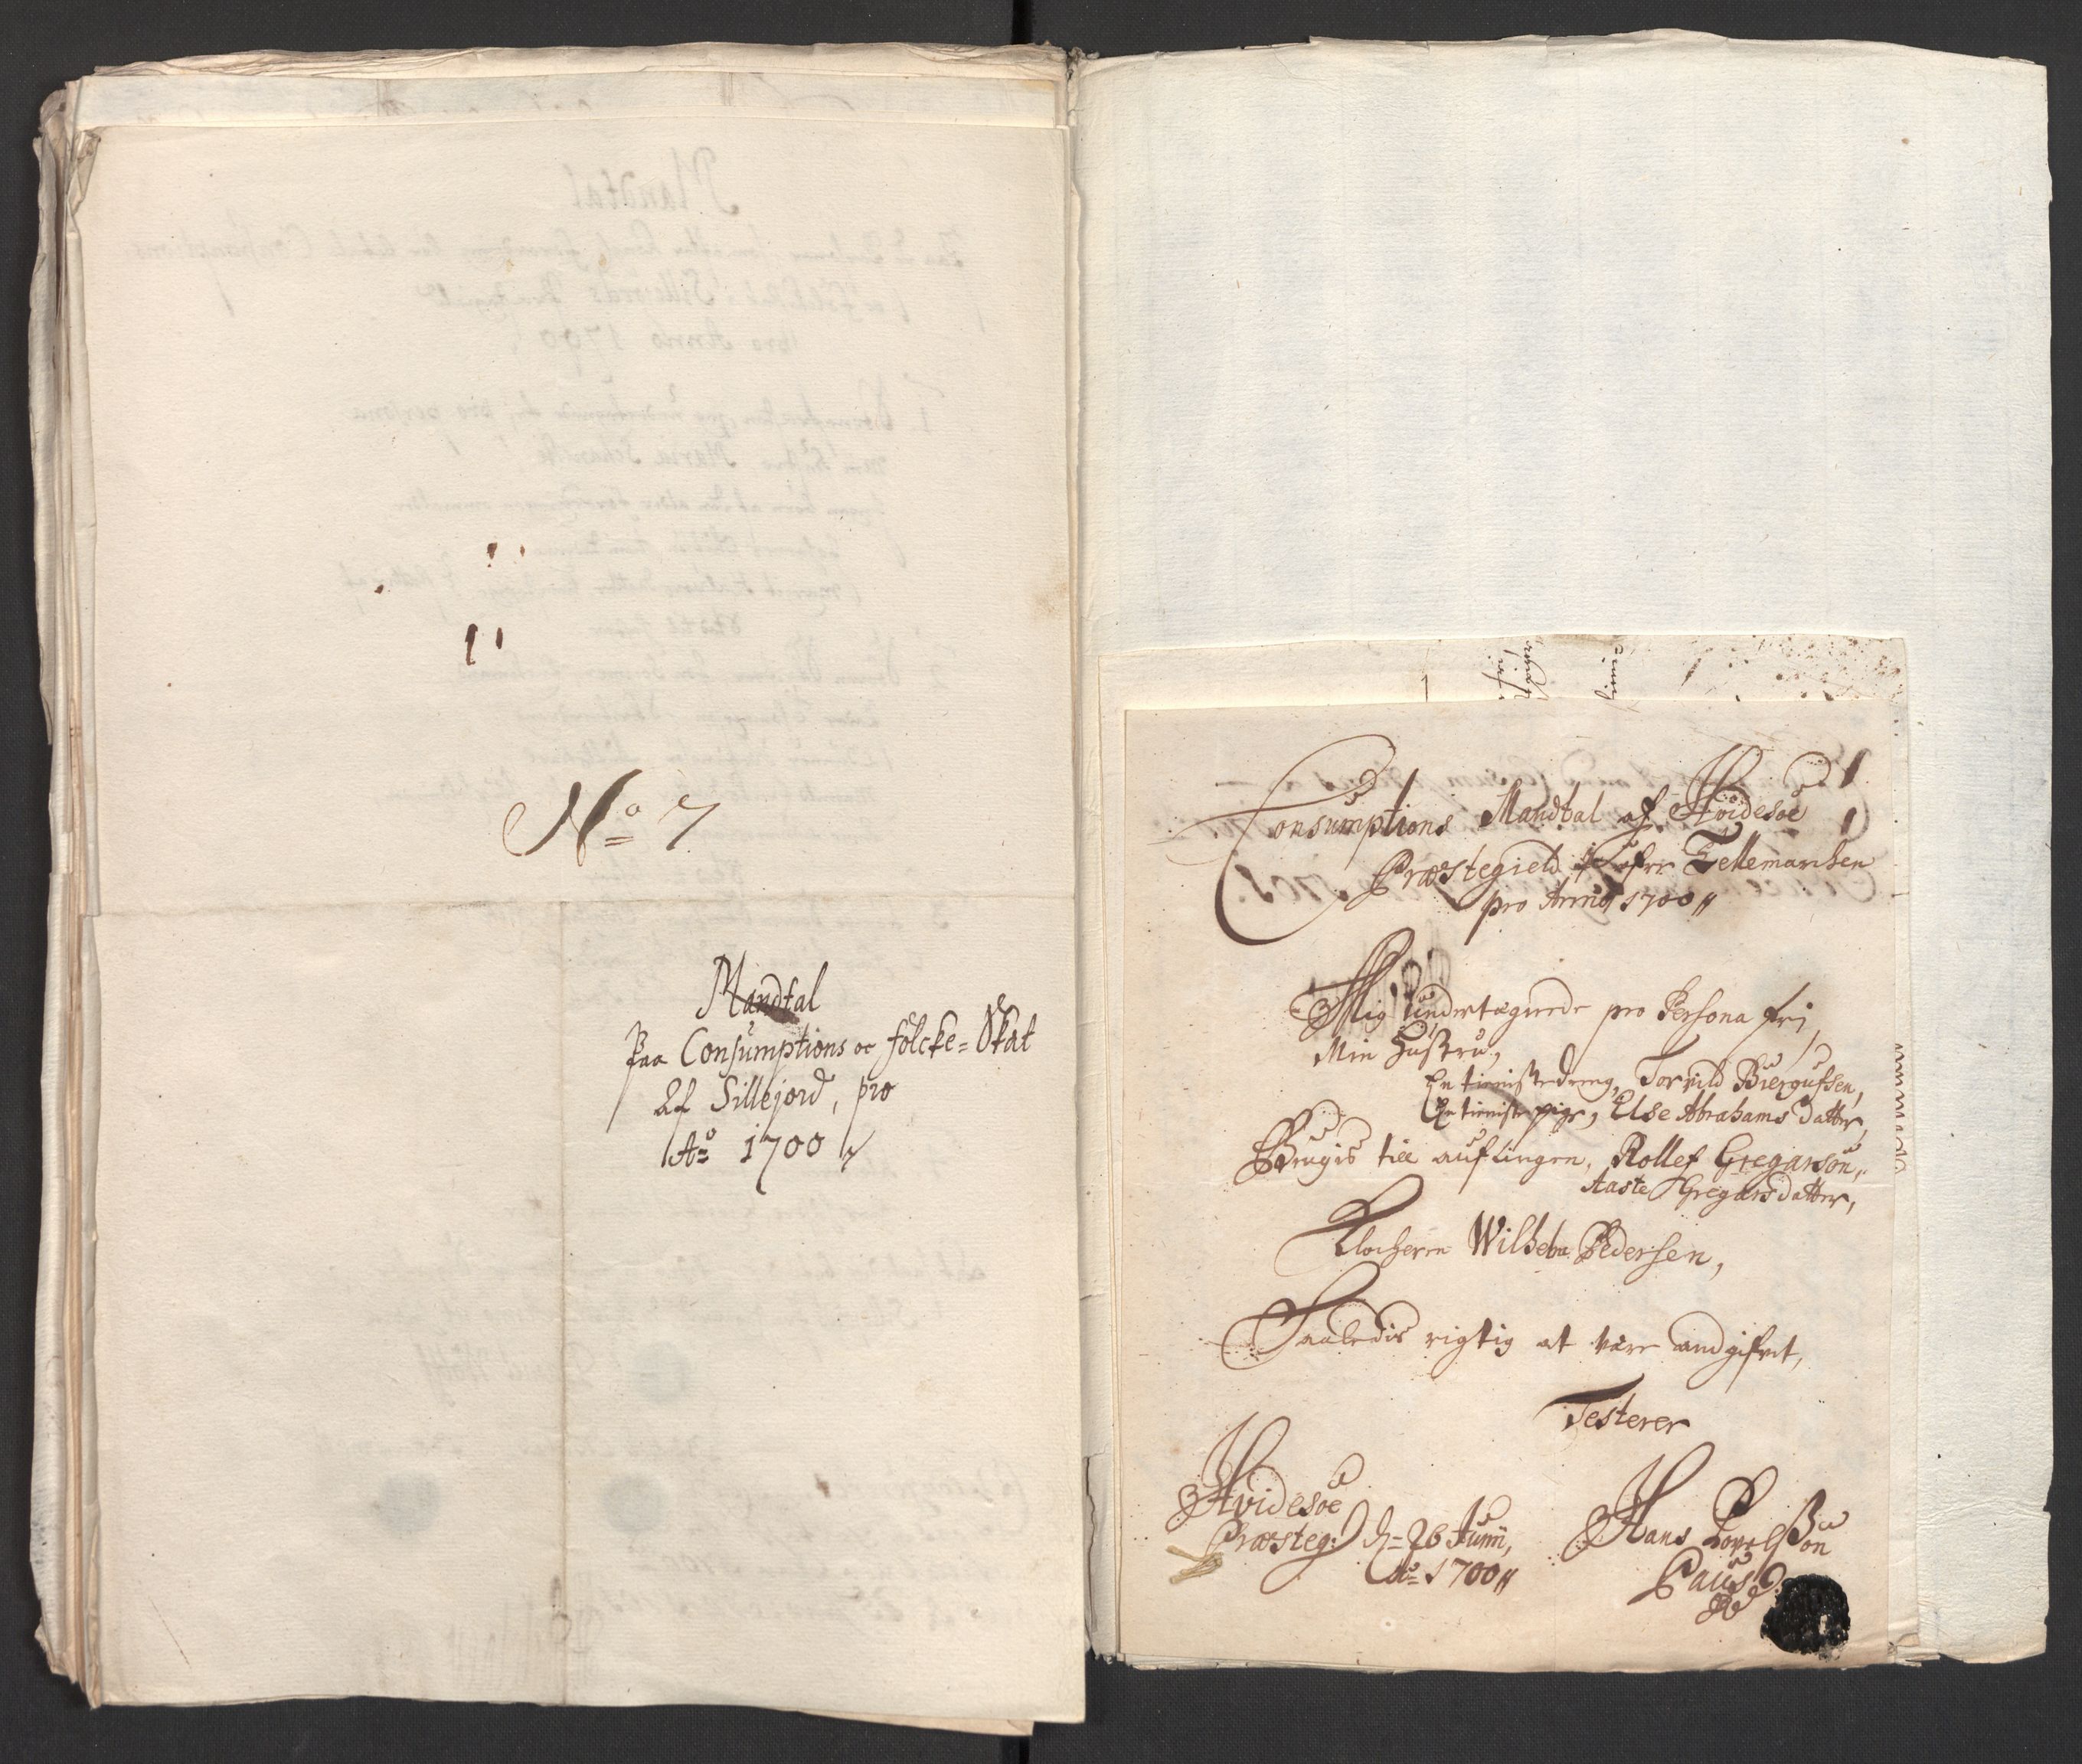 No 7
Mandtal
Paa Consumptions oc folcke=Skat
Af Sillejord, pro
Ao 1700
Consumptions Mandtal af Hvidesöe
Præstegield i Öfre Tellemarchen
pro Anno 1700
Mig undertegnede pro Persona fri,
Min Hustru,
En tieniste dreng, Torvild Biergufsen,
En tieniste pige, Else Abrahams datter,
Brugis till auflingen, Rollef Gregarsøn,
Aaste Gregars datter,
Klocheren Wilhelm Pedersen,
Saaledis rigtig at være angifvet,
Testerer
Hvidesöe
Præsteg: d= 26 Junii,
Ao= 1700
Hans Povelsøn
Paus